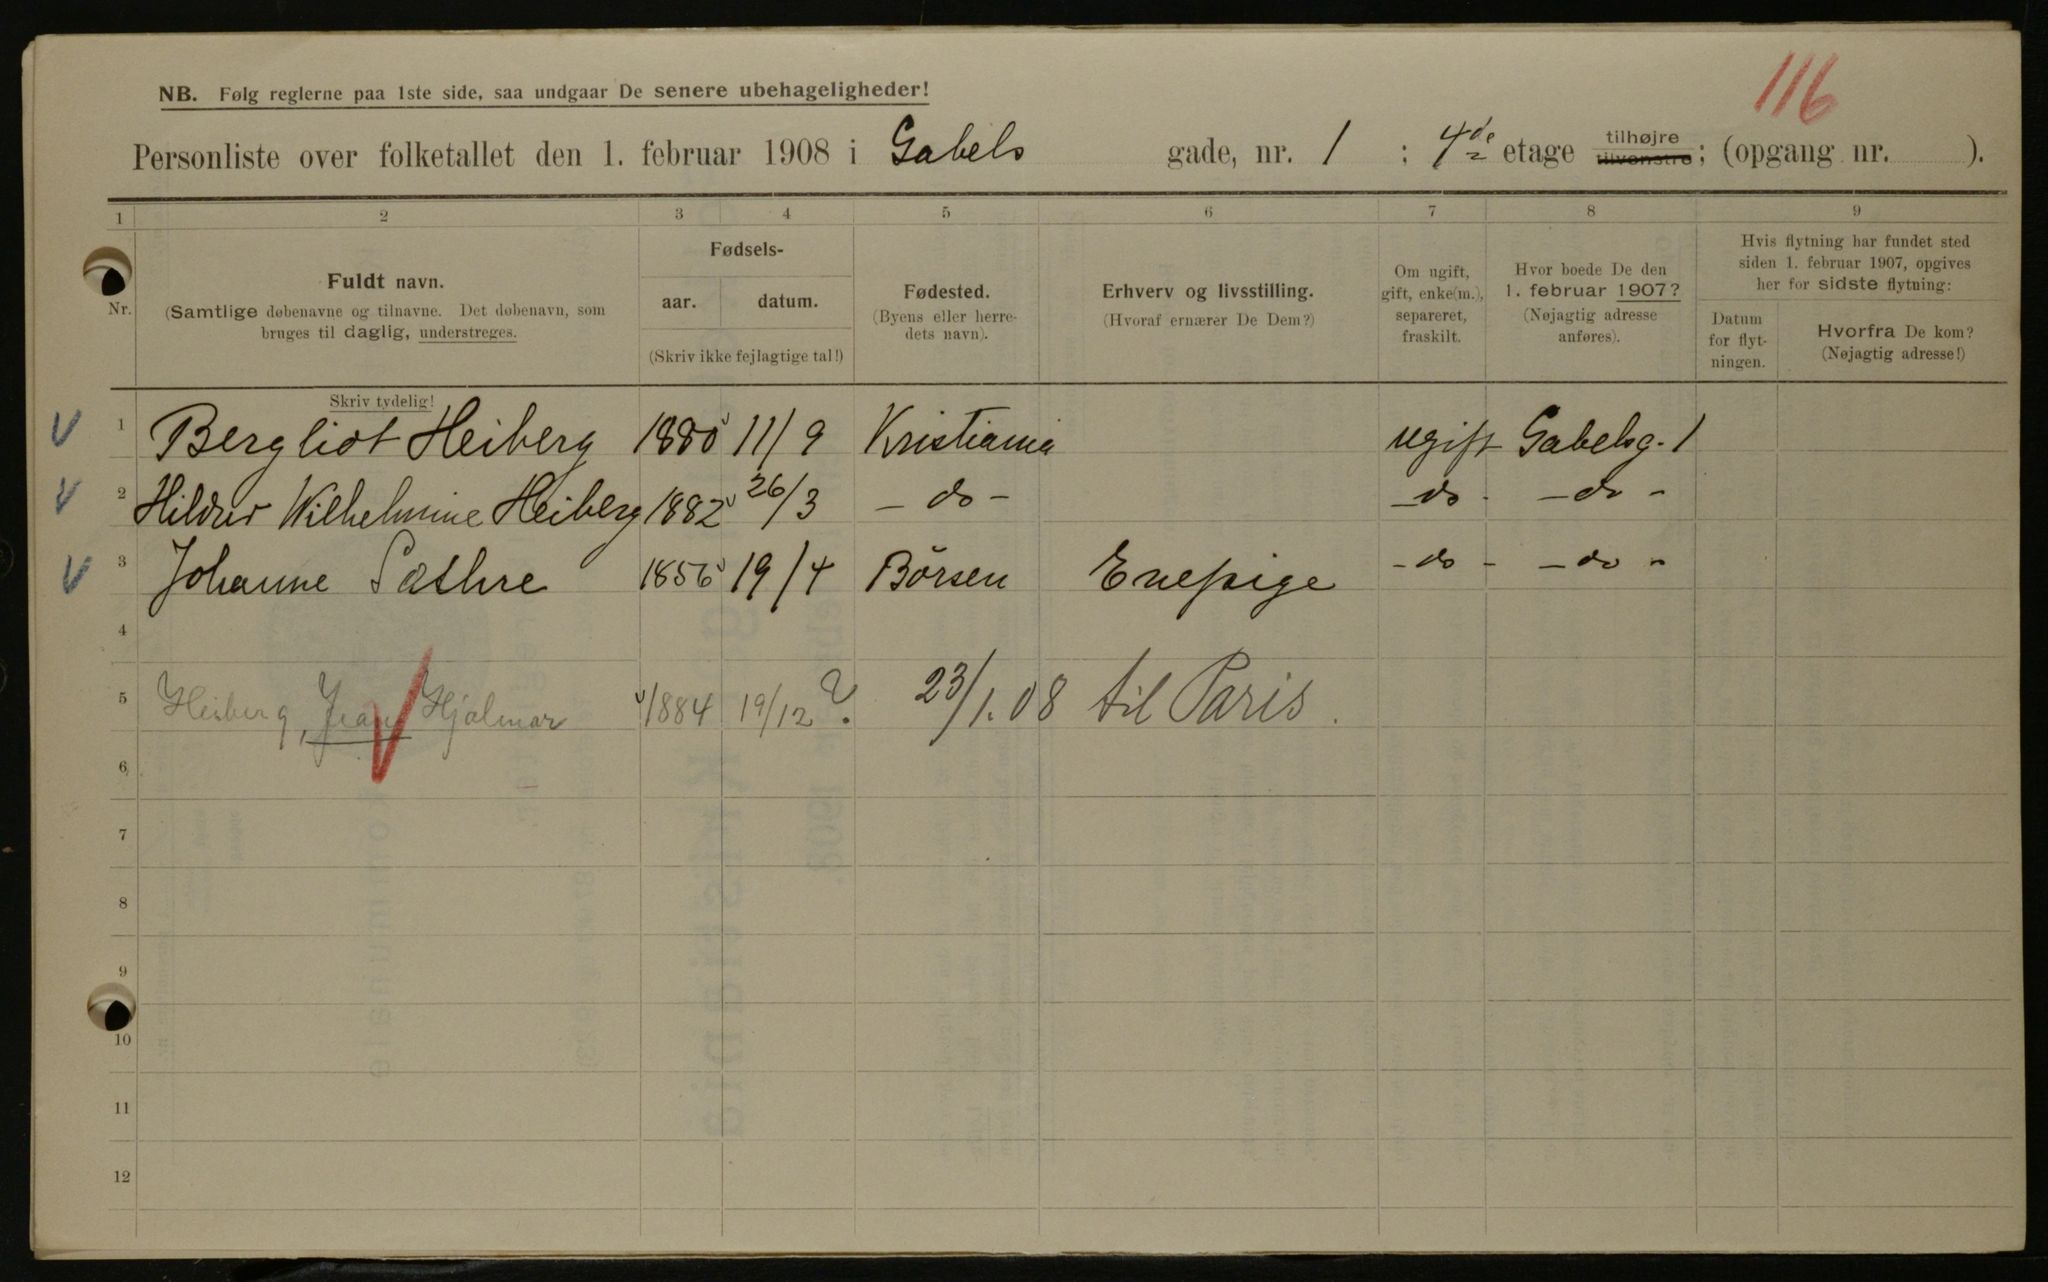 116
NB. Følg reglerne paa 1ste side, saa undgaar De senere ubehageligheder!
Personliste over folketallet den 1. februar 1908 i Gabels gade, nr. 1 ; 4de etage tilhøjre tilvenstre; (opgang nr. ).
1 2 3 4 5 6 7 8 9
Nr. Fuldt navn. (Samtlige døbenavne og tilnavne. Det døbenavn, som bruges til daglig, understreges.
Fødsels-
aar. datum.
(Skriv ikke fejlagtige tal!)
Fødested. (Byens eller herredets navn).
Erhverv og livsstilling. (Hvoraf ernærer De Dem?)
Om ugift, gift, enke(m.), separeret, fraskilt.
Hvor boede De den 1. februar 1907? (Nøjagtig adresse anføres).
Hvis flytning har fundet sted siden 1. februar 1907, opgives her for sidste flytning:
Datum for flytningen.
Hvorfra De kom? (Nøjagtig adresse!)
Skriv tydelig!
1 Bergliot Heiberg 1880 11/9 Kristiania ugift Gabelsg. 1
2 Hildur Wilhelmine Heiberg 1882 26/3 - do - - do - - do -
3 Johanne Sæthre 1856 19/4 Börsen Enepige - do - - do -
4
5 Heiberg, Jean Hjalmar 1884 19/12 ? 23/1.08 til Paris.
6
7
8
9
10
11
12